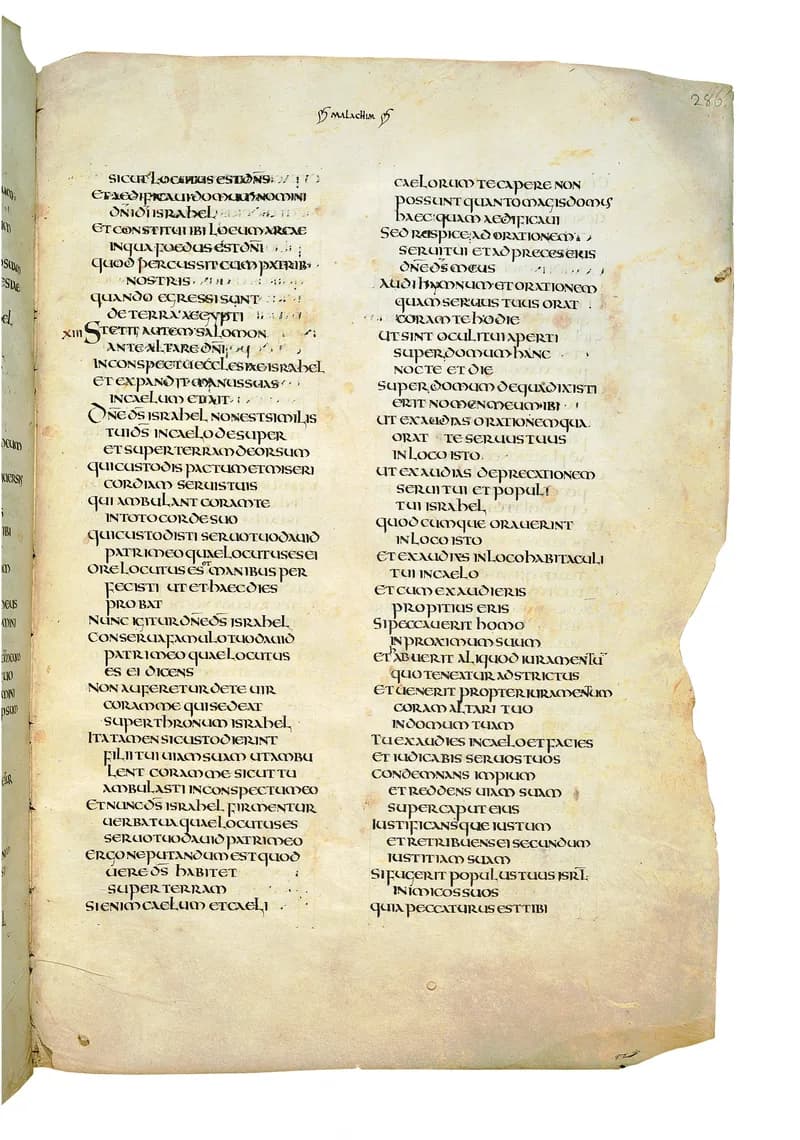 MALACHIM
286
SICUT LOCUTUS EST DN̄S
ET AEDIFICAUI DOMUM NOMINI
DN̄I DĪ ISRAHEL
ET CONSTITUI IBI LOCUM ARCAE
IN QUA FOEDUS EST DN̄I
QUOD PERCUSSIT CUM PATRIB·
NOSTRIS
QUANDO EGRESSI SUNT
DE TERRA AEGYPTI
XIII STETIT AUTEM SALOMON
ANTE ALTARE DN̄I
IN CONSPECTU ECCLESIAE ISRAHEL
ET EXPANDIT MANUS SUAS
IN CAELUM ET AIT
DN̄E DS̄ ISRAHEL NON EST SIMILIS
TUI DS̄ IN CAELO DESUPER
ET SUPER TERRAM DEORSUM
QUI CUSTODIS PACTUM ET MISERI
CORDIAM SERUIS TUIS
QUI AMBULANT CORAM TE
IN TOTO CORDE SUO
QUI CUSTODISTI SERUO TUO DAUID
PATRI MEO QUAE LOCUTUS ES EI
ORE LOCUTUS ES ET MANIBUS PER
FECISTI UT ET HAEC DIES
PROBAT
NUNC IGITUR DN̄E DS̄ ISRAHEL
CONSERUA FAMULO TUO DAUID
PATRI MEO QUAE LOCUTUS
ES EI DICENS
NON AUFERETUR DE TE UIR
CORAM ME QUI SEDEAT
SUPER THRONUM ISRAHEL
ITA TAMEN SI CUSTODIERINT
FILII TUI UIAM SUAM UT AMBU
LENT CORAM ME SICUT TU
AMBULASTI IN CONSPECTU MEO
ET NUNC DS̄ ISRAHEL FIRMENTUR
UERBA TUA QUAE LOCUTUS ES
SERUO TUO DAUID PATRI MEO
ERGO NE PUTANDUM EST QUOD
UERE DS̄ HABITET
SUPER TERRAM
SI ENIM CAELUM ET CAELI
CAELORUM TE CAPERE NON
POSSUNT QUANTO MAGIS DOMUS
HAEC QUAM AEDIFICAUI
SED RESPICE AD ORATIONEM
SERUI TUI ET AD PRECES EIUS
DN̄E DS̄ MEUS
AUDI HYMNUM ET ORATIONEM
QUAM SERUUS TUUS ORAT
CORAM TE HODIE
UT SINT OCULI TUI APERTI
SUPER DOMUM HANC
NOCTE ET DIE
SUPER DOMUM DE QUA DIXISTI
ERIT NOMEN MEUM IBI
UT EXAUDIAS ORATIONEM QUA
ORAT TE SERUUS TUUS
IN LOCO ISTO
UT EXAUDIAS DEPRECATIONEM
SERUI TUI ET POPULI
TUI ISRAHEL
QUODCUMQUE ORAUERINT
IN LOCO ISTO
ET EXAUDIES IN LOCO HABITACULI
TUI IN CAELO
ET CUM EXAUDIERIS
PROPITIUS ERIS
SI PECCAUERIT HOMO
IN PROXIMUM SUUM
ET HABUERIT ALIQUOD IURAMENTŪ
QUO TENEATUR ADSTRICTUS
ET UENERIT PROPTER IURAMENTUM
CORAM ALTARI TUO
IN DOMUM TUAM
TU EXAUDIES IN CAELO ET FACIES
ET IUDICABIS SERUOS TUOS
CONDEMNANS IMPIUM
ET REDDENS UIAM SUAM
SUPER CAPUT EIUS
IUSTIFICANSQUE IUSTUM
ET RETRIBUENS EI SECUNDUM
IUSTITIAM SUAM
SI FUGERIT POPULUS TUUS ISRL̄
INIMICOS SUOS
QUIA PECCATURUS EST TIBI